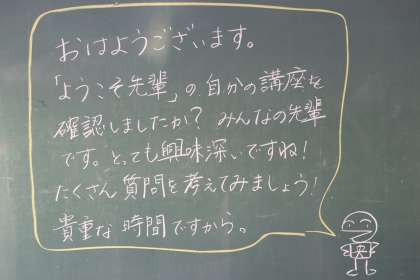 おはようございます。
「ようこそ先輩」の自分の講座を
確認しましたか？みんなの先輩
です。とっても興味深いですね！
たくさん質問を考えてみましょう！
貴重な時間ですから。